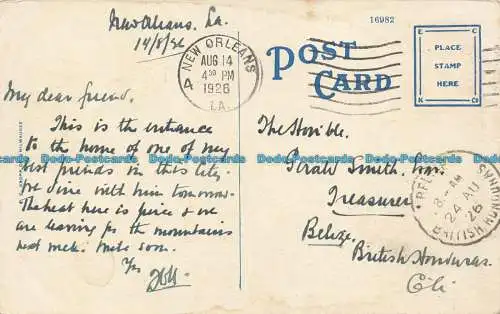 New Orleans. La.
14/8/26
16982
NEW ORLEANS
4
AUG 14
4 30 PM
1926
LA.
POST
CARD
E C
PLACE
STAMP
HERE
K Co
My dear friend.
This is the entrance
to the home of one of my
best friends in this city.
We dine with him tomorrow.
The heat here is fierce & we
are leaving for the mountains
next week. Write soon.
Yrs
The Honble.
Smith, Esq.
Treasurer
Belize.
British Honduras.
8 - AM
24 AU
26
BRITISH HONDURAS
Dodo-Postcards Dodo-Postcards Dodo-Postcards Dodo-Postcards Dodo-Postcards